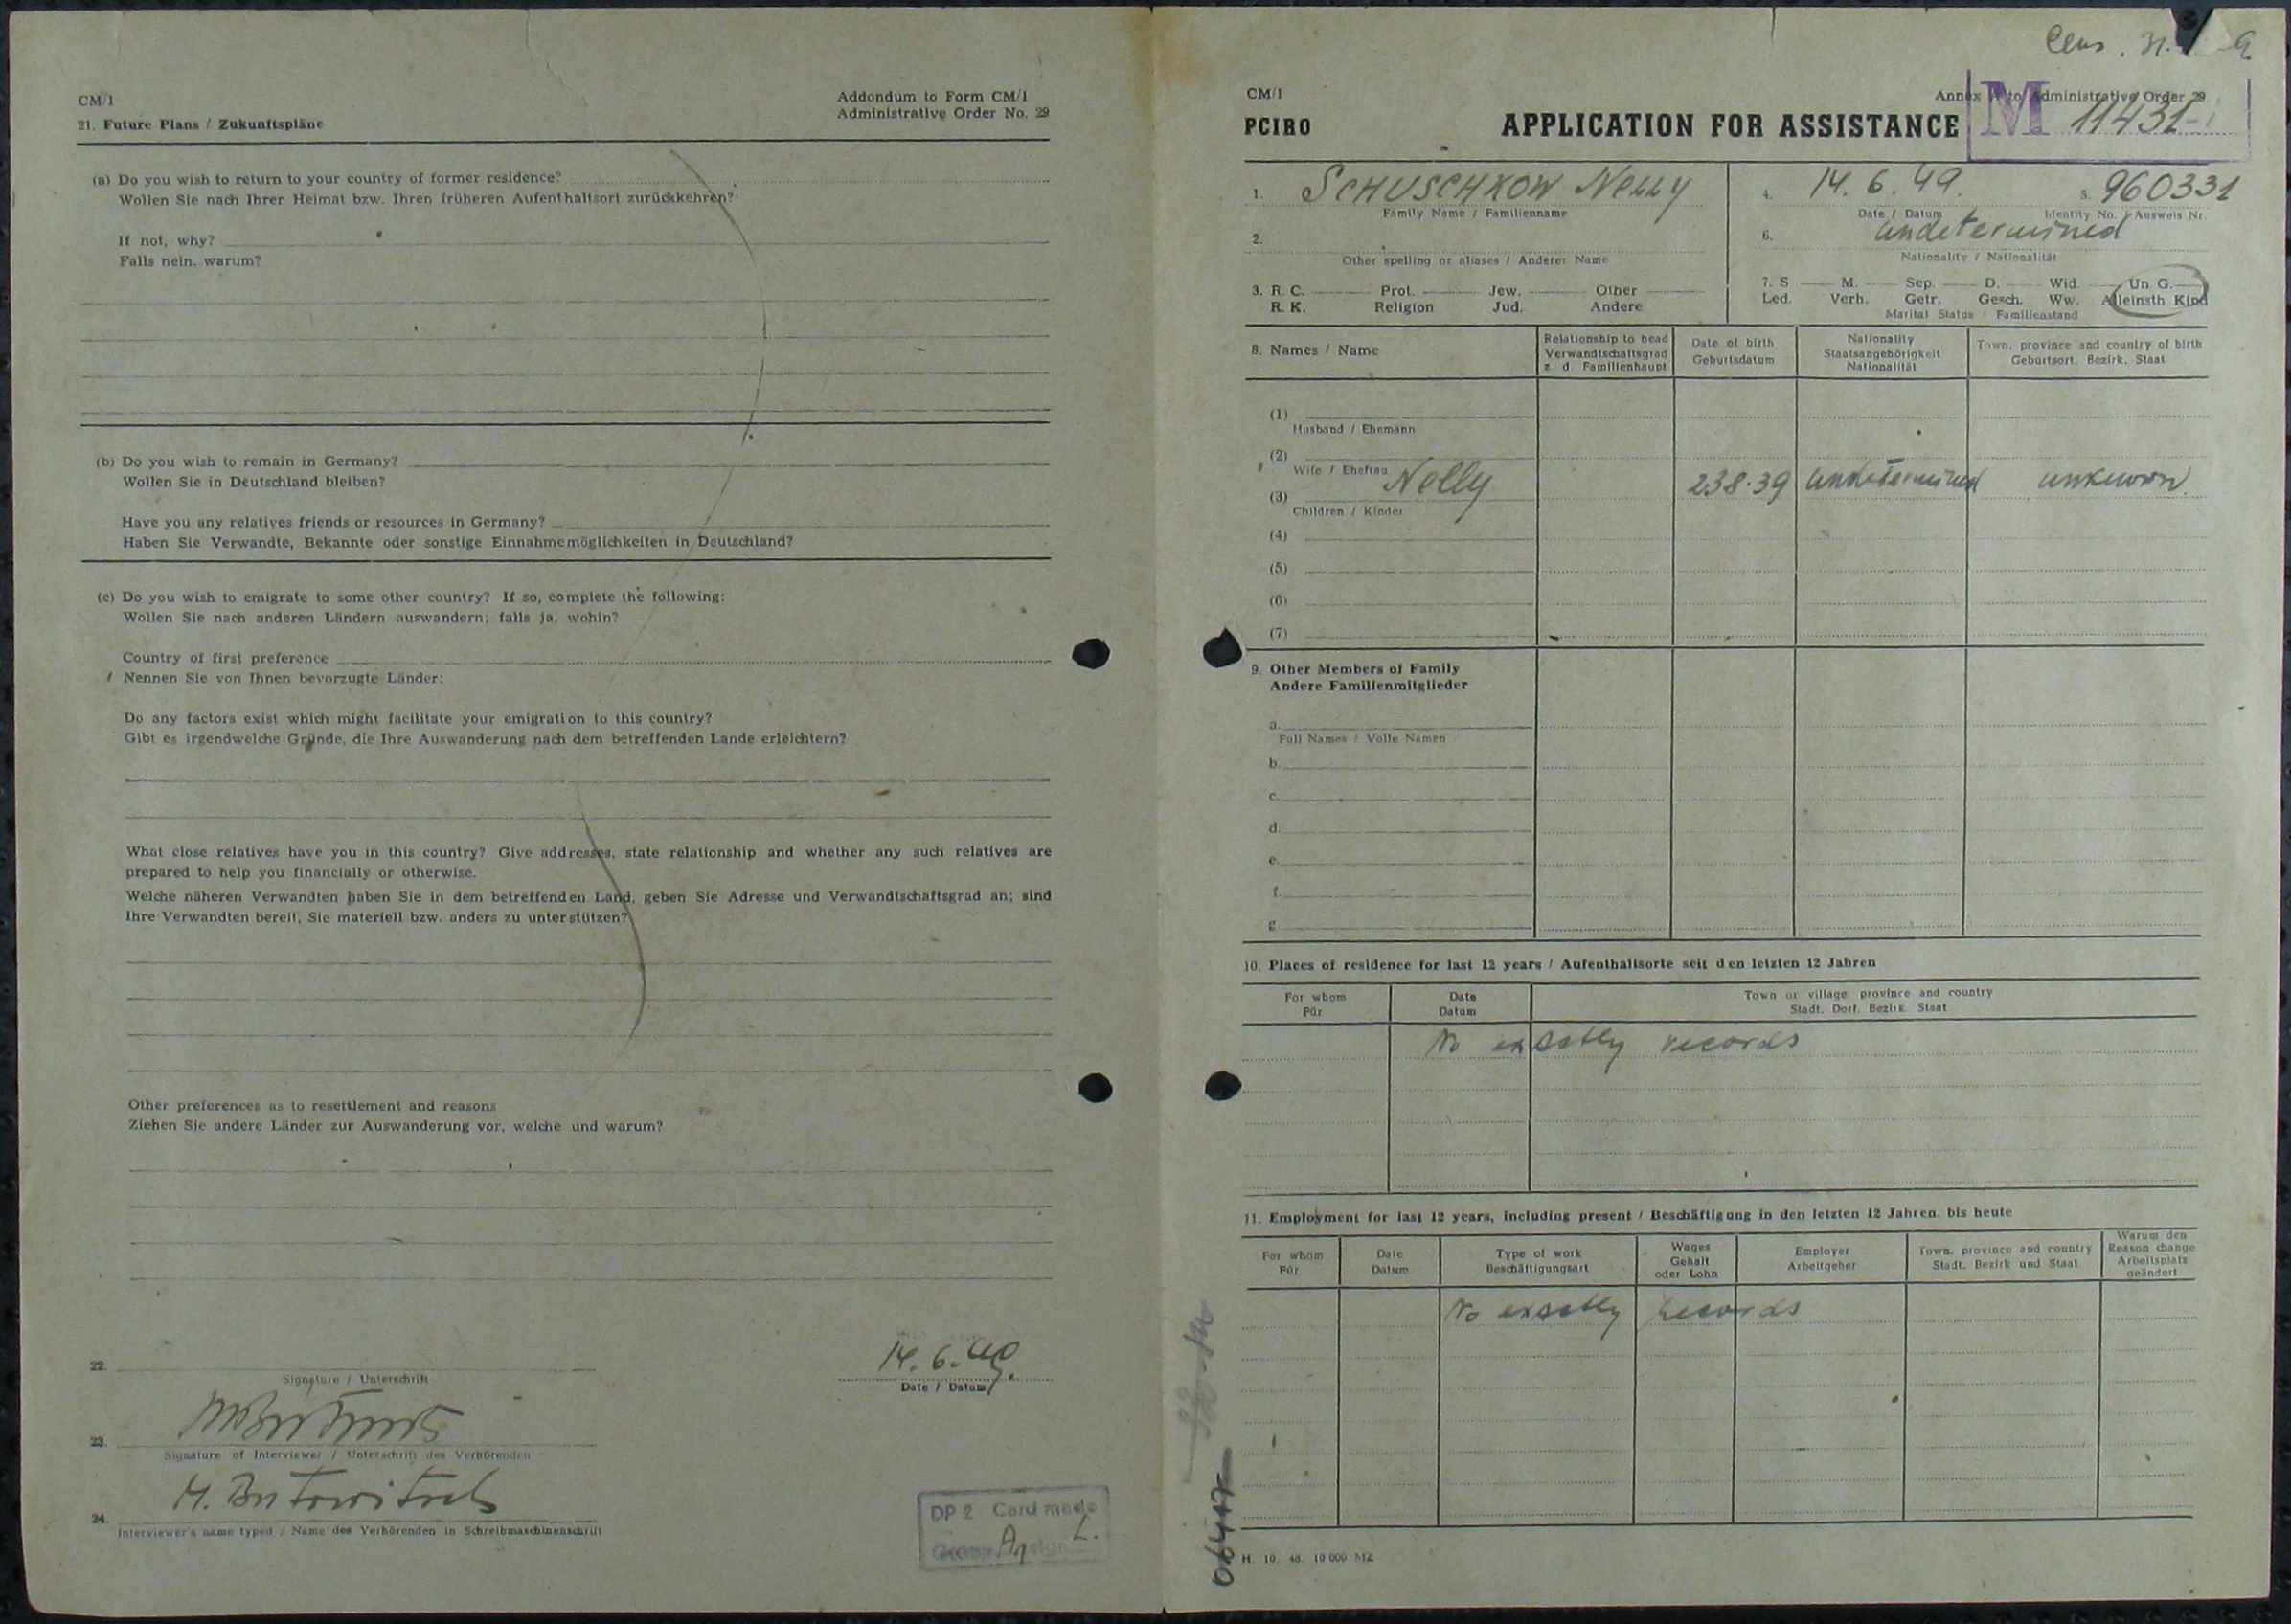 CM/1
Addondum to Form CM/1
Administrative Order No. 29
21. Future Plans / Zukunftspläne
(a) Do you wish to return to your country of former residence?
Wollen Sie nach Ihrer Heimat bzw. Ihren früheren Aufenthaltsort zurückkehren?
If not, why?
Falls nein, warum?
(b) Do you wish to remain in Germany?
Wollen Sie in Deutschland bleiben?
Have you any relatives friends or resources in Germany?
Haben Sie Verwandte, Bekannte oder sonstige Einnahmemöglichkeiten in Deutschland?
(c) Do you wish to emigrate to some other country? If so, complete the following:
Wollen Sie nach anderen Ländern auswandern; falls ja, wohin?
Country of first preference
Nennen Sie von Ihnen bevorzugte Länder:
Do any factors exist which might facilitate your emigration to this country?
Gibt es irgendwelche Gründe, die Ihre Auswanderung nach dem betreffenden Lande erleichtern?
What close relatives have you in this country? Give addresses, state relationship and whether any such relatives are
prepared to help you financially or otherwise.
Welche näheren Verwandten haben Sie in dem betreffenden Land, geben Sie Adresse und Verwandtschaftsgrad an; sind
Ihre Verwandten bereit, Sie materiell bzw. anders zu unterstützen?
Other preferences as to resettlement and reasons
Ziehen Sie andere Länder zur Auswanderung vor, welche und warum?
22.
Signature / Unterschrift
14. 6. 49.
Date / Datum
23.
Signature of Interviewer / Unterschrift des Verhörenden
24.
Interviewer's name typed / Name des Verhörenden in Schreibmaschinenschrift
DP 2 Card made
CM/1
Annex A to Administrative Order 29
PCIRO
APPLICATION FOR ASSISTANCE
M 11431
1. SCHUSCHKOW NELLY
Family Name / Familienname
4. 14. 6. 49.
Date / Datum
5. 960331
Identity No. / Ausweis Nr.
2.
Other spelling or aliases / Anderer Name
6. undetermined
Nationality / Nationalität
3. R. C. Prot. Jew. Other
R. K. Religion Jud. Andere
7. S M. Sep. D. Wid. Un G.
Led. Verh. Getr. Gesch. Ww. Alleinsth Kind
Marital Status / Familienstand
8. Names / Name
Relationship to head
Verwandtschaftsgrad
z. d Familienhaupt
Date of birth
Geburtsdatum
Nationality
Staatsangehörigkeit
Nationalität
Town, province and country of birth
Geburtsort, Bezirk, Staat
(1)
Husband / Ehemann
(2)
Wife / Ehefrau
(3) Nelly 23.8.39 undetermined unknown
Children / Kinder
(4)
(5)
(6)
(7)
9. Other Members of Family
Andere Familienmitglieder
a.
Full Names / Volle Namen
b.
c.
d.
e.
f.
g.
10. Places of residence for last 12 years / Aufenthaltsorte seit den letzten 12 Jahren
For whom
Für
Date
Datum
Town or village province and country
Stadt, Dorf, Bezirk Staat
No exactly records
11. Employment for last 12 years, including present / Beschäftigung in den letzten 12 Jahren, bis heute
For whom
Für
Date
Datum
Type of work
Beschäftigungsart
Wages
Gehalt
oder Lohn
Employer
Arbeitgeber
Town, province and country
Stadt, Bezirk und Staat
Warum den
Reason change
Arbeitsplatz
geändert
No exactly records
H. 10. 48. 10 000 MZ